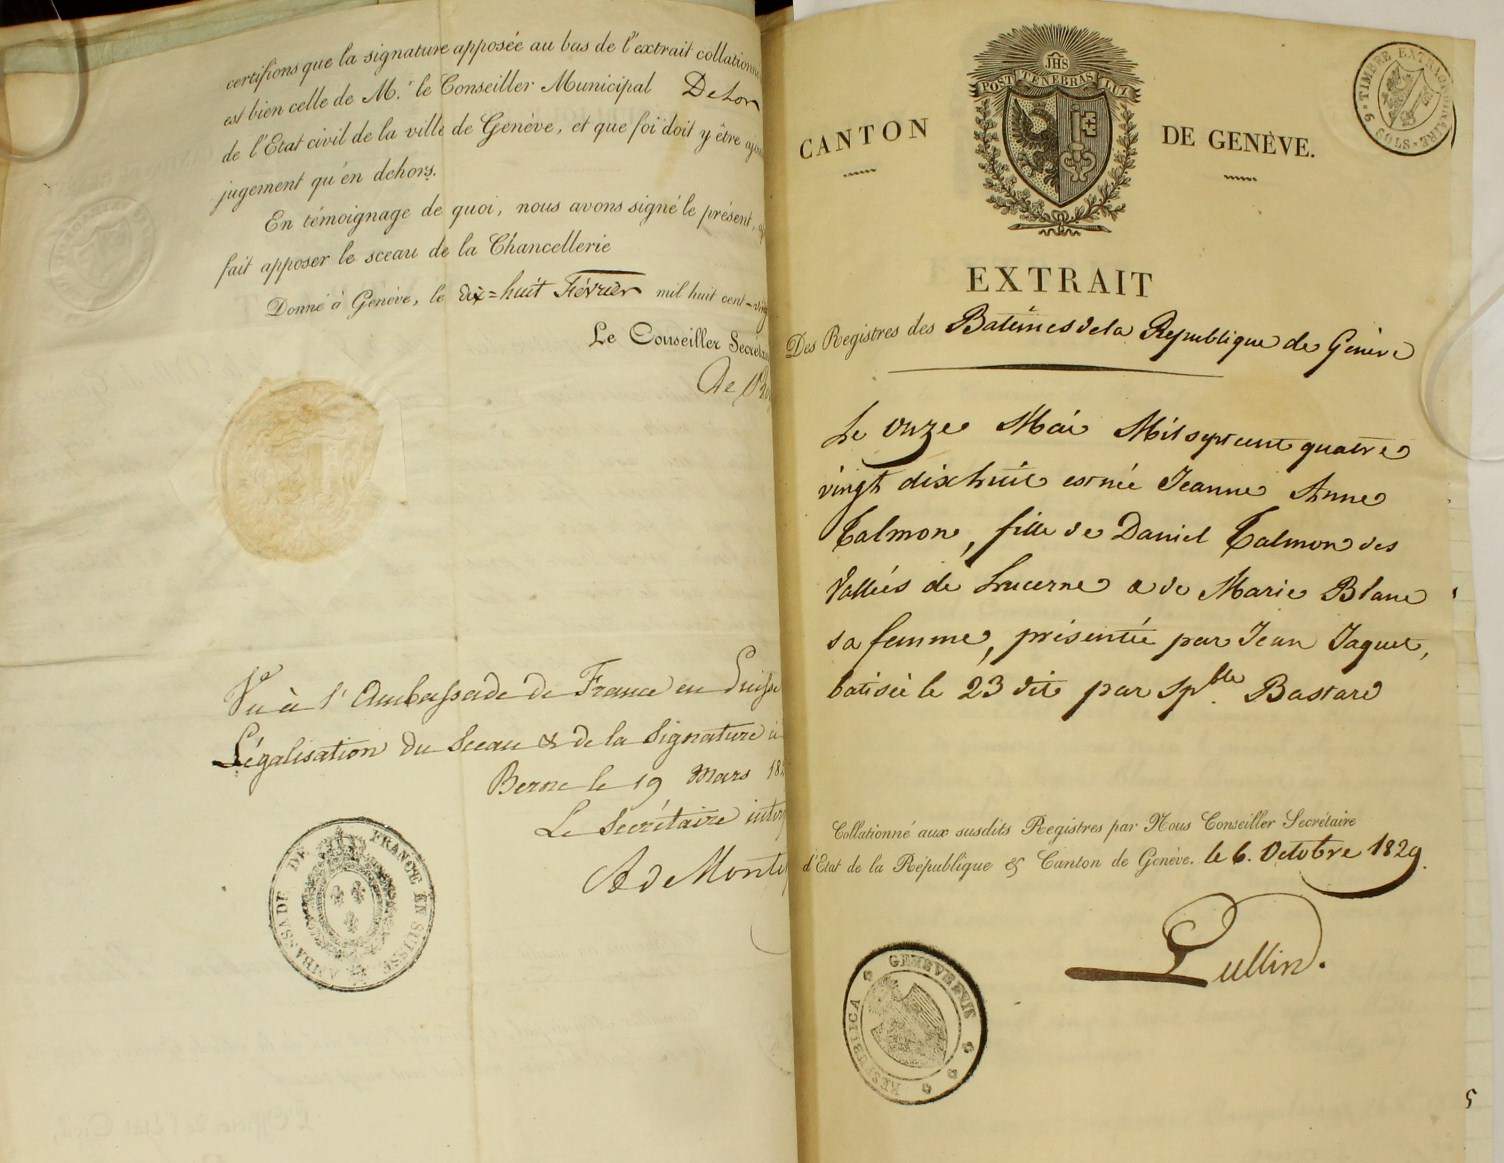 certifions que la signature apposée au bas de l'extrait collationné
est bien celle de M.r le Conseiller Municipal Dehor
de l'Etat civil de la ville de Genève, et que foi doit y être
jugement qu'en dehors.
En témoignage de quoi, nous avons signé le présent,
fait apposer le sceau de la Chancellerie
Donné à Genève, le dix=huit Février mil huit cent-ving
Le Conseiller Secréta
Vu à l'Ambassade de France en Suisse
Légalisation du Sceau & de la Signature
Berne le 19 Mars 18
Le Secrétaire
A de Monti
AMBASSADE DE FRANCE EN SUISSE
JHS
POST TENEBRAS LUX
CANTON DE GENÈVE.
TIMBRE EXTRAORDINAIRE 6 SOLS
EXTRAIT
Des Registres des Batêmes de la République de Genève
Le onze Mai Mil sept cent quatre
vingt dix huit est née Jeanne Anne
Talmon, fille de Daniel Talmon des
Vallées de Lucerne & de Marie Blanc
sa femme, présentée par Jean Jaquet,
batisée le 23 dit par Sp.ble Bastard
Collationné aux susdits Registres par Nous Conseiller Secrétaire
d'Etat de la République & Canton de Genève. le 6. Octobre 1829.
Lullin.
RESPUBLICA GENEVENSIS